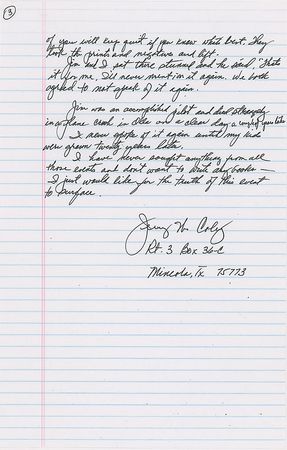 3
of you will keep quit if you know whats best. They
took the prints and negatives and left.
Jim and I set there stunned and he said, "thats
it for me, I'll never mention it again. We both
agreed to not speak of it again.
Jim was an accomplished pilot and died strangely
in a plane crash in Okla. on a clear day a couple of years later
I never spoke of it again until my kids
were grown twenty years later.
I have never sought anything from all
those events and dont want to write any books —
I just would like for the truth of this event
to surface.
Jerry W. Coley
Rt. 3 Box 36-C
Mineola, Tx 75773